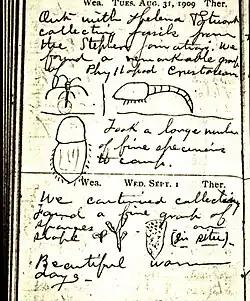 Wea. TUES. AUG. 31, 1909 Ther.
Out with Helena & Stuart
collecting fossils from
the Stephen formation. We
found a remarkable group
of Phyllopod Crustaceans
Took a large number
of fine specimens
to camp.
Wea. WED. SEPT. 1 Ther.
We continued collecting
found a fine group of
sponges on
slope (in situ).
Beautiful warm
days -